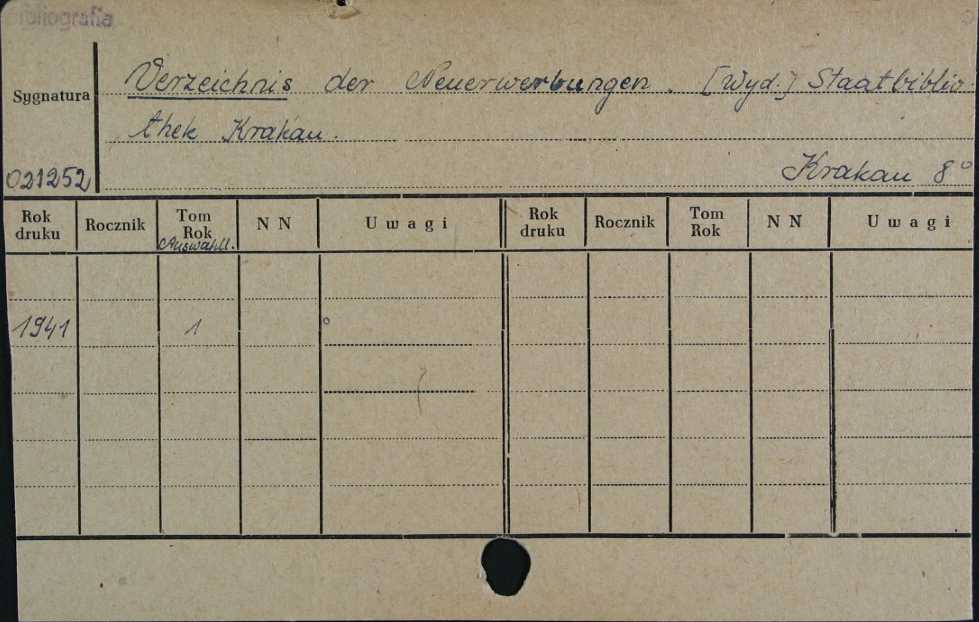 bibliografia
Verzeichnis der Neuerwerbungen. [Wyd.] Staatbiblio-
Sygnatura
thek Krakau.
021252
Krakau 8°
Rok druku Rocznik Tom Rok Auswahl. N N Uwagi Rok druku Rocznik Tom Rok N N Uwagi
1941 1 °